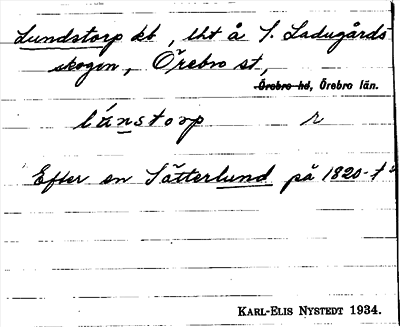 Lundstorp kb, lht å S. Ladugårds-
skogen, Örebro st,
Örebro hd, Örebro län.
lánstorp r
Efter en Sätterlund på 1820-t.
KARL-ELIS NYSTEDT 1934.